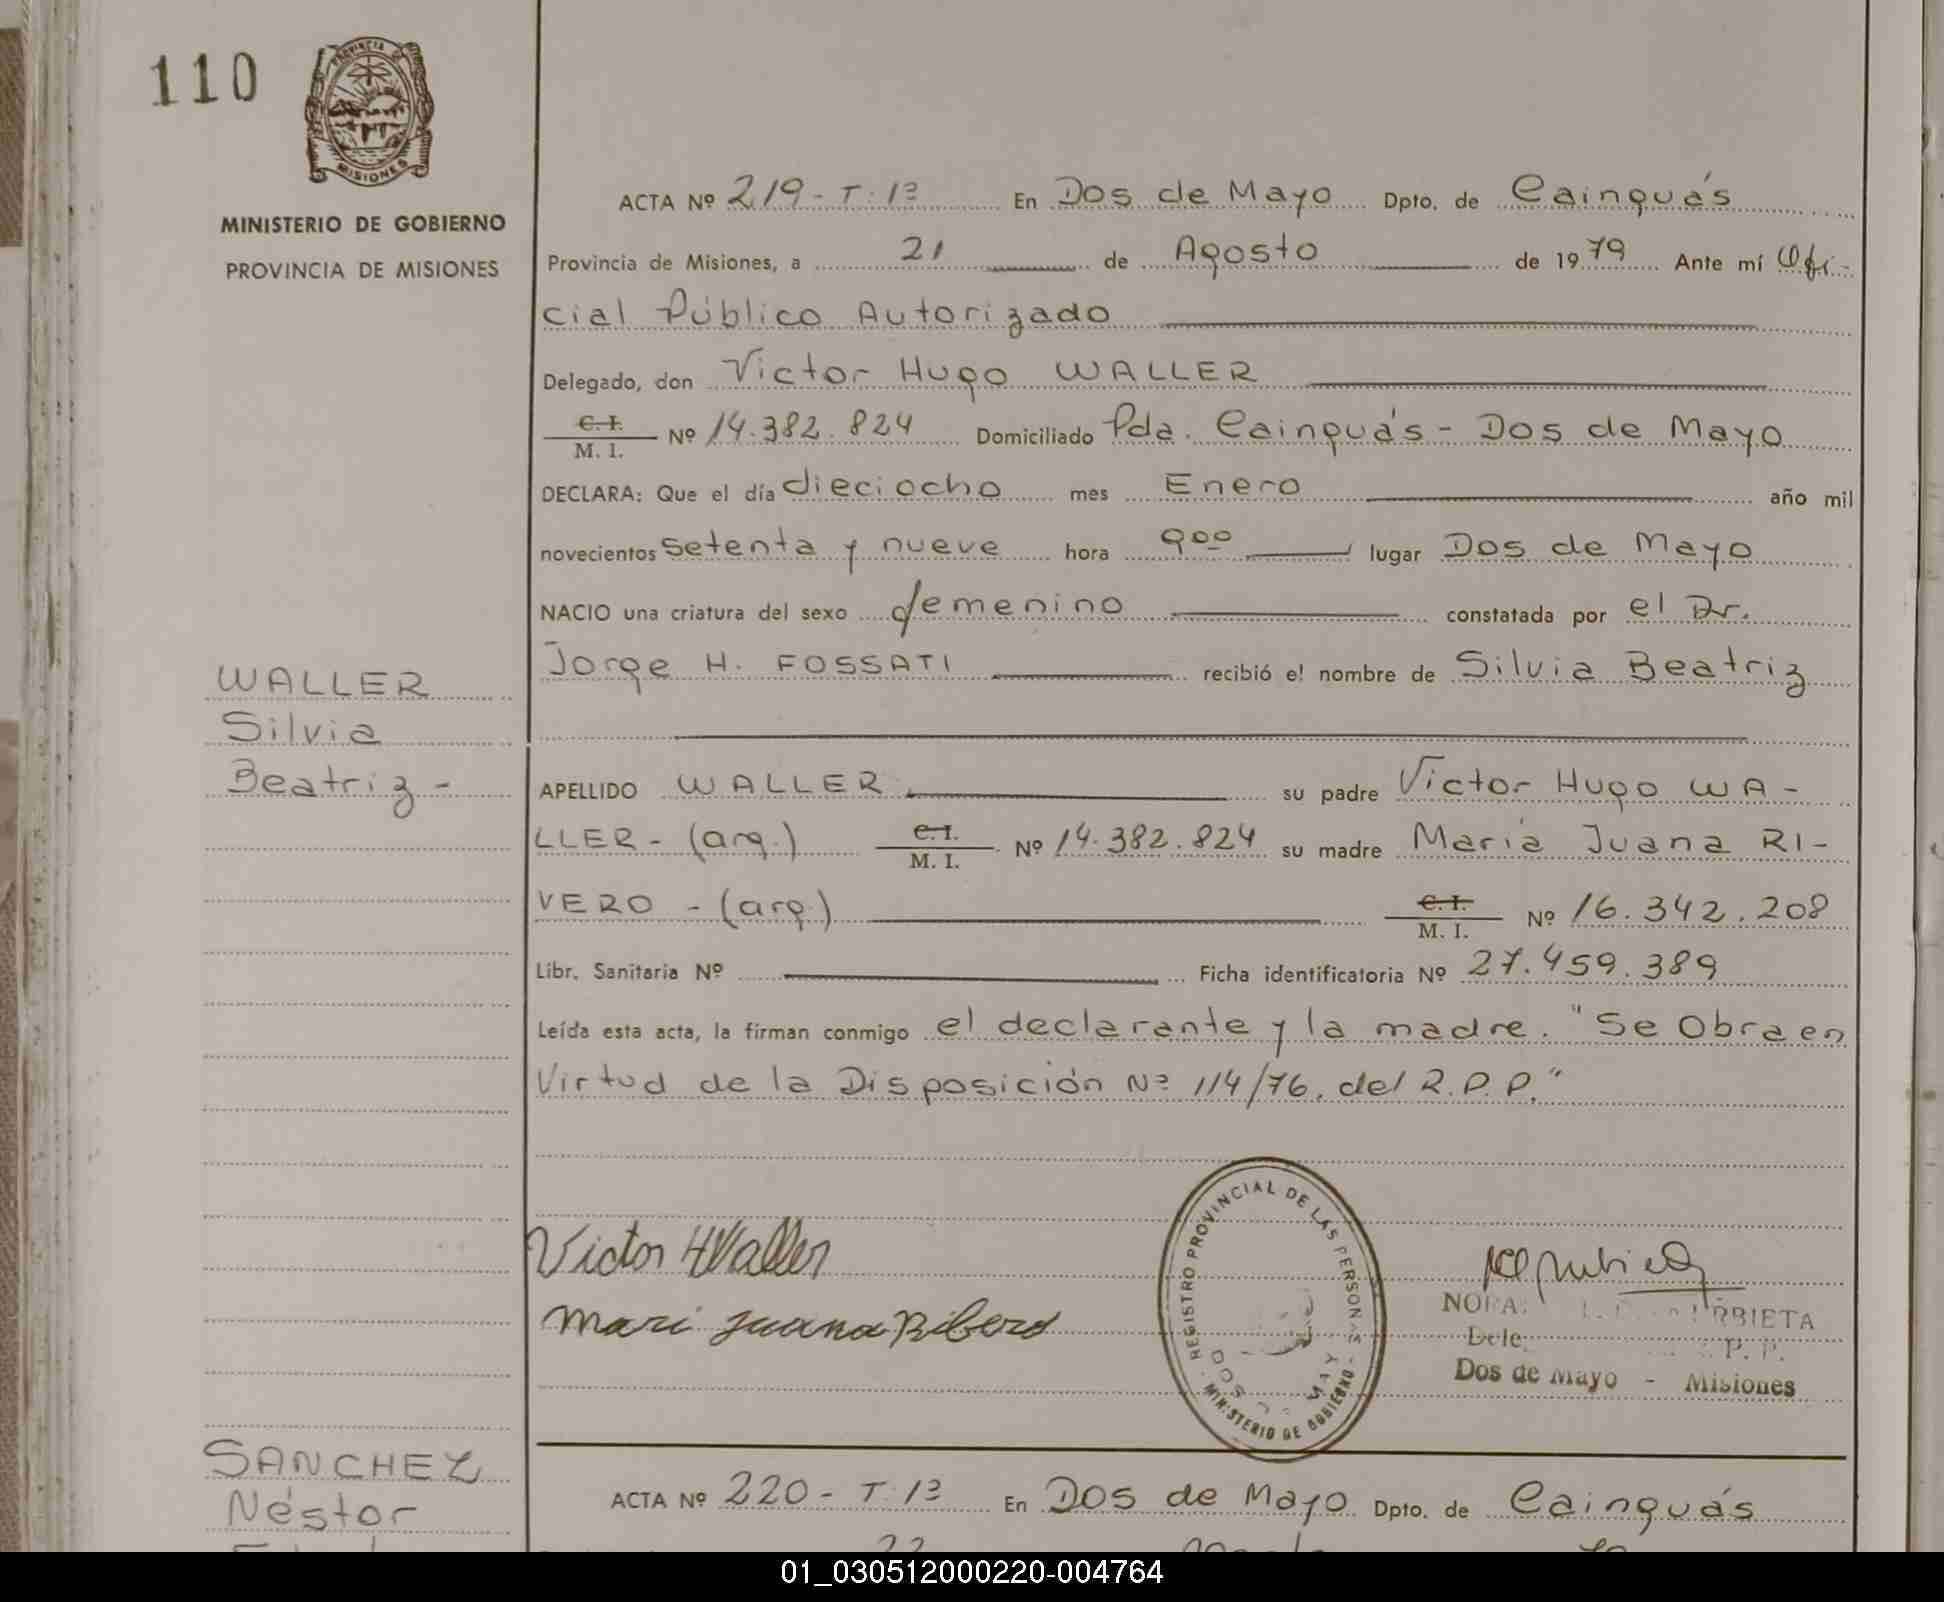 110
PROVINCIA DE
MISIONES
MINISTERIO DE GOBIERNO
PROVINCIA DE MISIONES
ACTA Nº 219 - T: 1º En Dos de Mayo Dpto. de Cainguás
Provincia de Misiones, a 21 de Agosto de 1979 Ante mí Ofi-
cial Público Autorizado
Delegado, don Victor Hugo WALLER
C. I.
M. I. Nº 14.382.824 Domiciliado Pda. Cainguás - Dos de Mayo
DECLARA: Que el día dieciocho mes Enero año mil
novecientos setenta y nueve hora 9 00 lugar Dos de Mayo
NACIO una criatura del sexo femenino constatada por el Dr.
Jorge H. FOSSATI recibió el nombre de Silvia Beatriz
WALLER
Silvia
Beatriz -
APELLIDO WALLER su padre Victor Hugo WA-
LLER - (arg.) C. I. M. I. Nº 14.382.824 su madre María Juana RI-
VERO - (arg.) C. I. M. I. Nº 16.342.208
Libr. Sanitaria Nº Ficha identificatoria Nº 27.459.389
Leída esta acta, la firman conmigo el declarante y la madre. "Se Obra en
Virtud de la Disposición Nº 114/76. del R.P.P."
Victor H Waller
Mari Juana Ribero
REGISTRO PROVINCIAL DE LAS PERSONAS
DOS MAY
MINISTERIO DE GOBIERNO
RBIETA
P. P.
Dos de Mayo - Misiones
SANCHEZ
Néstor
ACTA Nº 220 - T: 1º En Dos de Mayo Dpto. de Cainguás
01_030512000220-004764